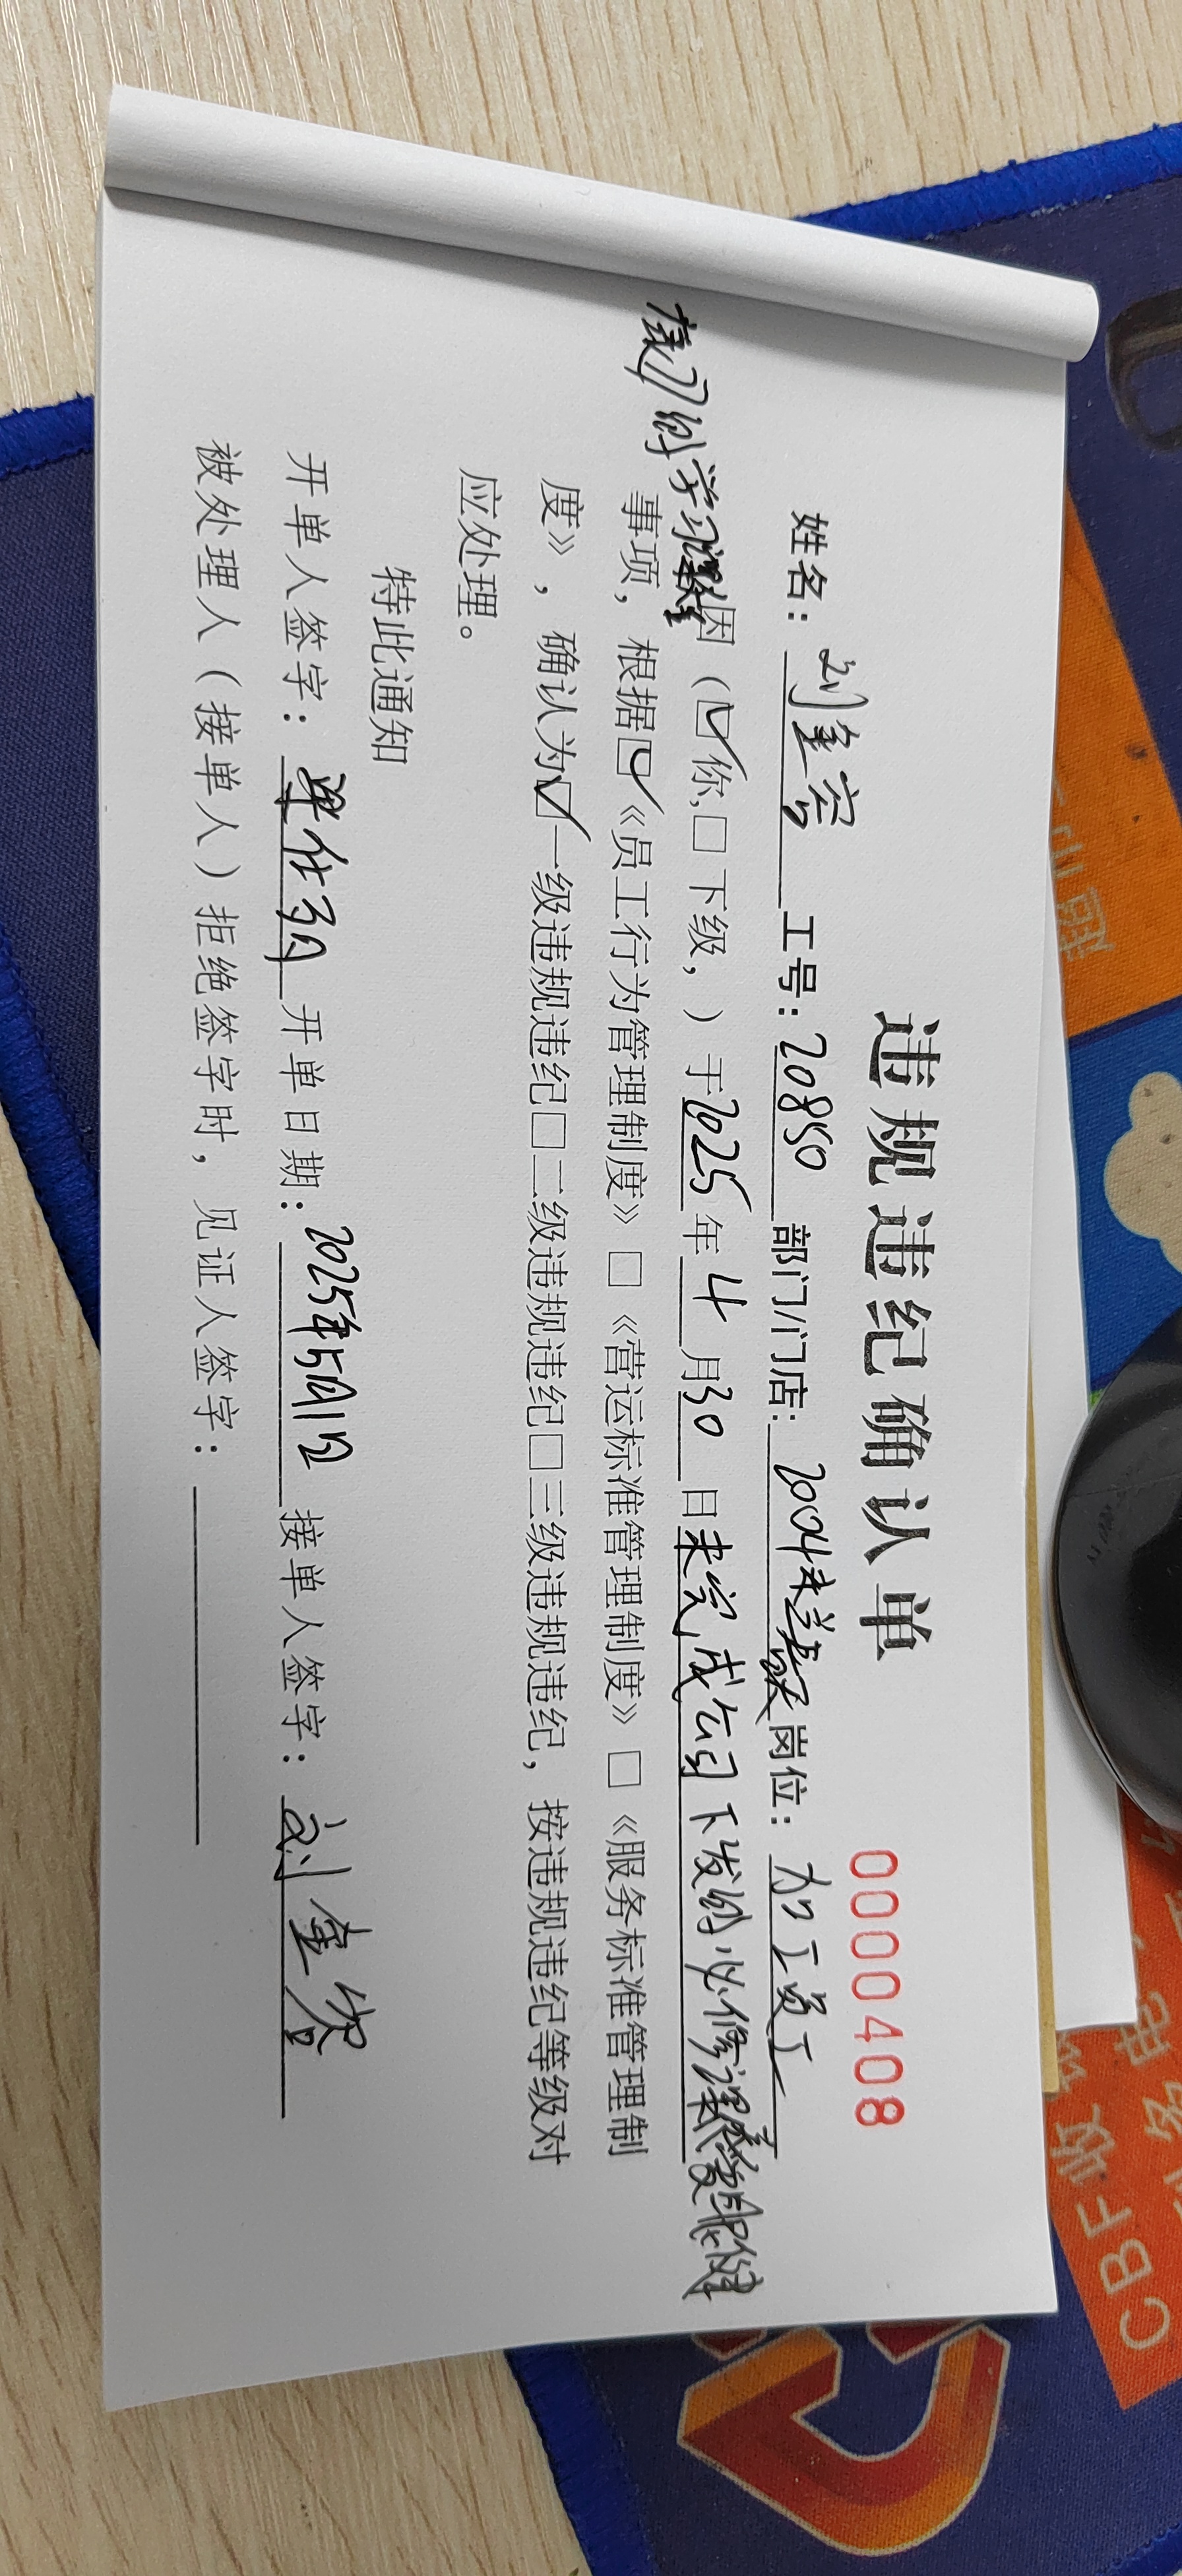 违规违纪确认单
0000408
姓名：刘金容 工号：20850 部门/门店：2004来 岗位：加工员工
因（☑你,□下级,）于2025年4月30日未完成公司下发的必修课
技巧的学习课程
事项，根据☑《员工行为管理制度》□《营运标准管理制度》□《服务标准管理制
度》，确认为☑一级违规违纪□二级违规违纪□三级违规违纪，按违规违纪等级对
应处理。
特此通知
开单人签字： 开单日期：2025年5月1日 接单人签字：刘金容
被处理人（接单人）拒绝签字时，见证人签字：
CBF收